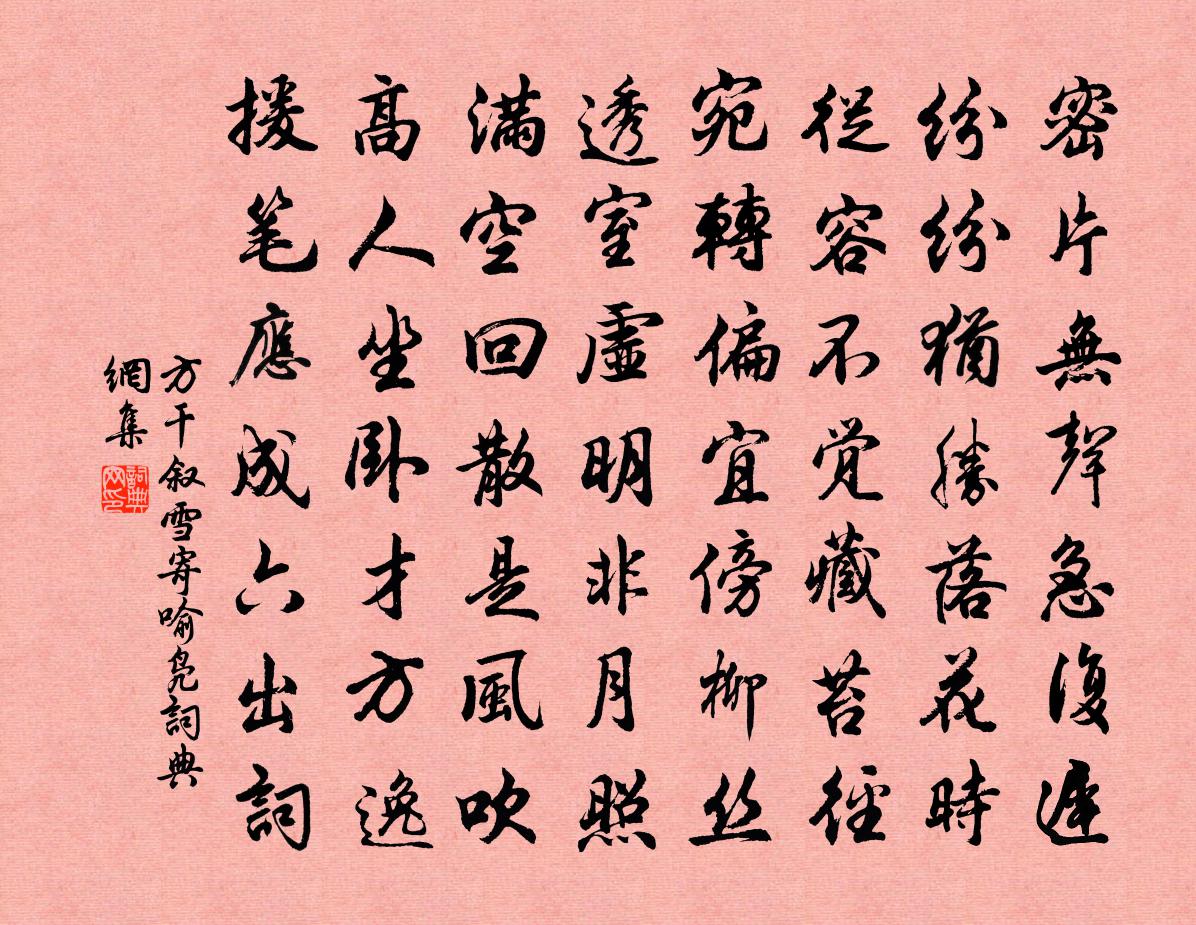 密片無聲急復遲
紛紛猶勝落花時
從容不覺藏苔徑
宛轉偏宜傍柳丝
透室虛明非月照
滿空回散是風吹
高人坐卧才方逸
援笔應成六出詞
方干叙雪寄喻凫詞典
網集
詞典
网印